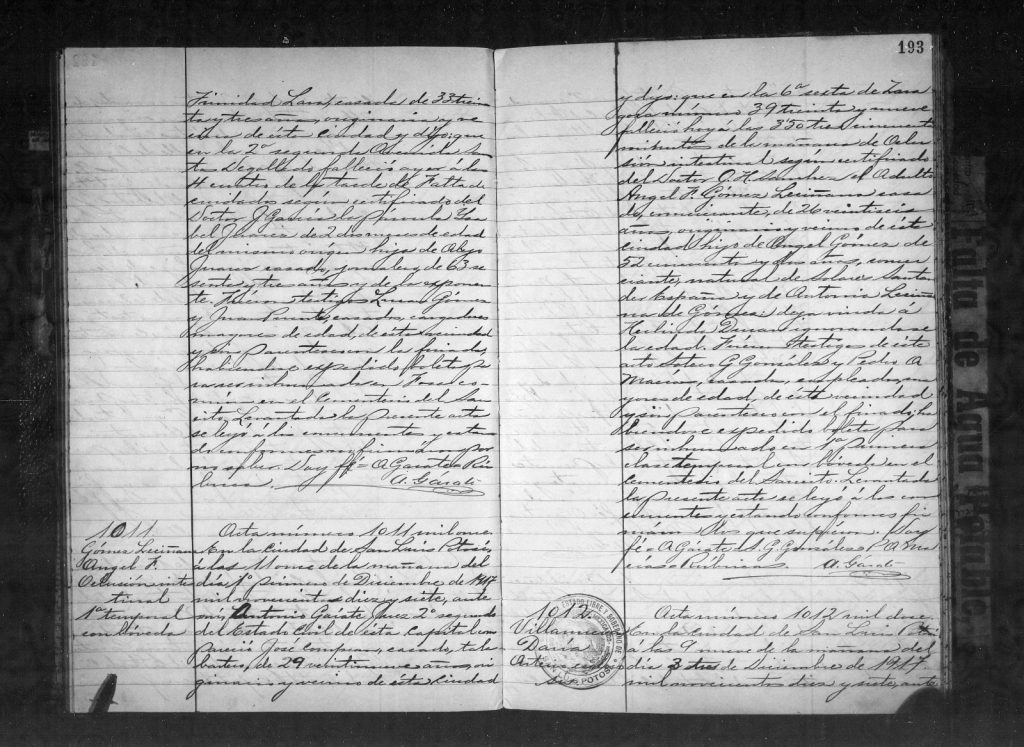 Trinidad Lara, casada de 33 trein
ta y tres años, originaria y ve
cina de ésta Ciudad y dijo: que
en la 2ª segunda Avenida San
tos Degollado falleció ayer á las
4 cuatro de la tarde de Falta de
cuidados según certificado del
Doctor J. García la párvula Isa
bel Juárez de 2 dos meses de edad
del mismo origen hija de
Juárez casado, jornalero, de 63 se
senta y tres años y de la exponen
te. Fueron testigos Gómez
y Juan casados, cargadores
mayores de edad, de ésta vecindad
y sin parentesco con la finada,
habiéndose expedido boleta pa
ra ser inhumada en Fosa co
mún en el Cementerio del Sau
cito. Levantada la presente acta
se leyó á los concurrentes y estan
do conformes no firmaron por
no saber. Doy fé = A Gárate = Rú
brica.
A. Gárate
1011
Gómez Leciñana
Angel F.
Oclusión intes
tinal
1ª temporal
con bóveda
Acta número 1011 mil once.
En la Ciudad de San Luis Potosí,
á las 11 once de la mañana del
día 1º primero de Diciembre de 1917
mil novecientos diez y siete, ante
mí, Antonio Gárate Juez 2º segundo
del Estado Civil de ésta Capital com
pareció José Compean, casado, tala
bartero, de 29 veintinueve años, ori
ginario y vecino de ésta Ciudad
193
y dijo: que en la 6ª sexta de Zara
goza número 39 treinta y nueve
falleció hoy á las 3 50 tres cincuenta
minutos de la mañana de Oclu
sión intestinal según certificado
del Doctor O. H. Sánchez el adulto
Angel F. Gómez Leciñana casa
do, comerciante, de 26 veintiseis
años, originario y vecino de ésta
Ciudad hijo de Angel Gómez de
52 cincuenta y dos años, comer
ciante, natural de Santan
der España y de Antonia Leciña
na de Gómez: deja viuda á
Duran ignorándose
la edad. Fueron testigos de éste
acto Sotero G. González y Pedro A
Macias, casados, empleados, ma
yores de edad, de ésta vecindad
y sin parentesco con el finado; ha
biéndose expedido boleta para
ser inhumado en 1ª primera
clase temporal con bóveda en el
Cementerio del Saucito. Levantada
la presente acta se leyó á los con
currentes y estando conformes fir
maron los que supieron. Doy
fé = A Gárate = S. G. González = P. A. Ma
cias = Rúbricas.
A. Gárate
1012
Villanueva
Daría
ESTADO LIBRE Y SOBERANO DE
POTOSI
Acta número 1012 mil doce
En la Ciudad de San Luis Potosí
á las 9 nueve de la mañana del
día 3 tres de Diciembre de 1917
mil novecientos diez y siete, ante
Falta de Agua